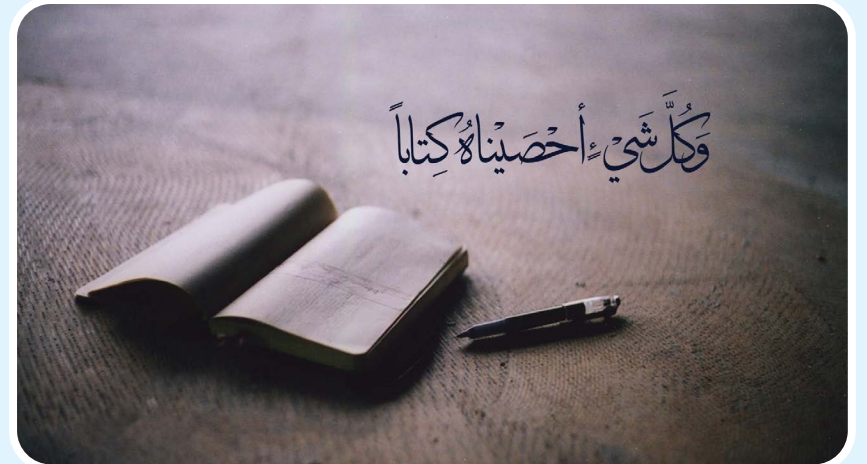 وَكُلَّ شَيْءٍ أَحْصَيْنَاهُ كِتَاباً